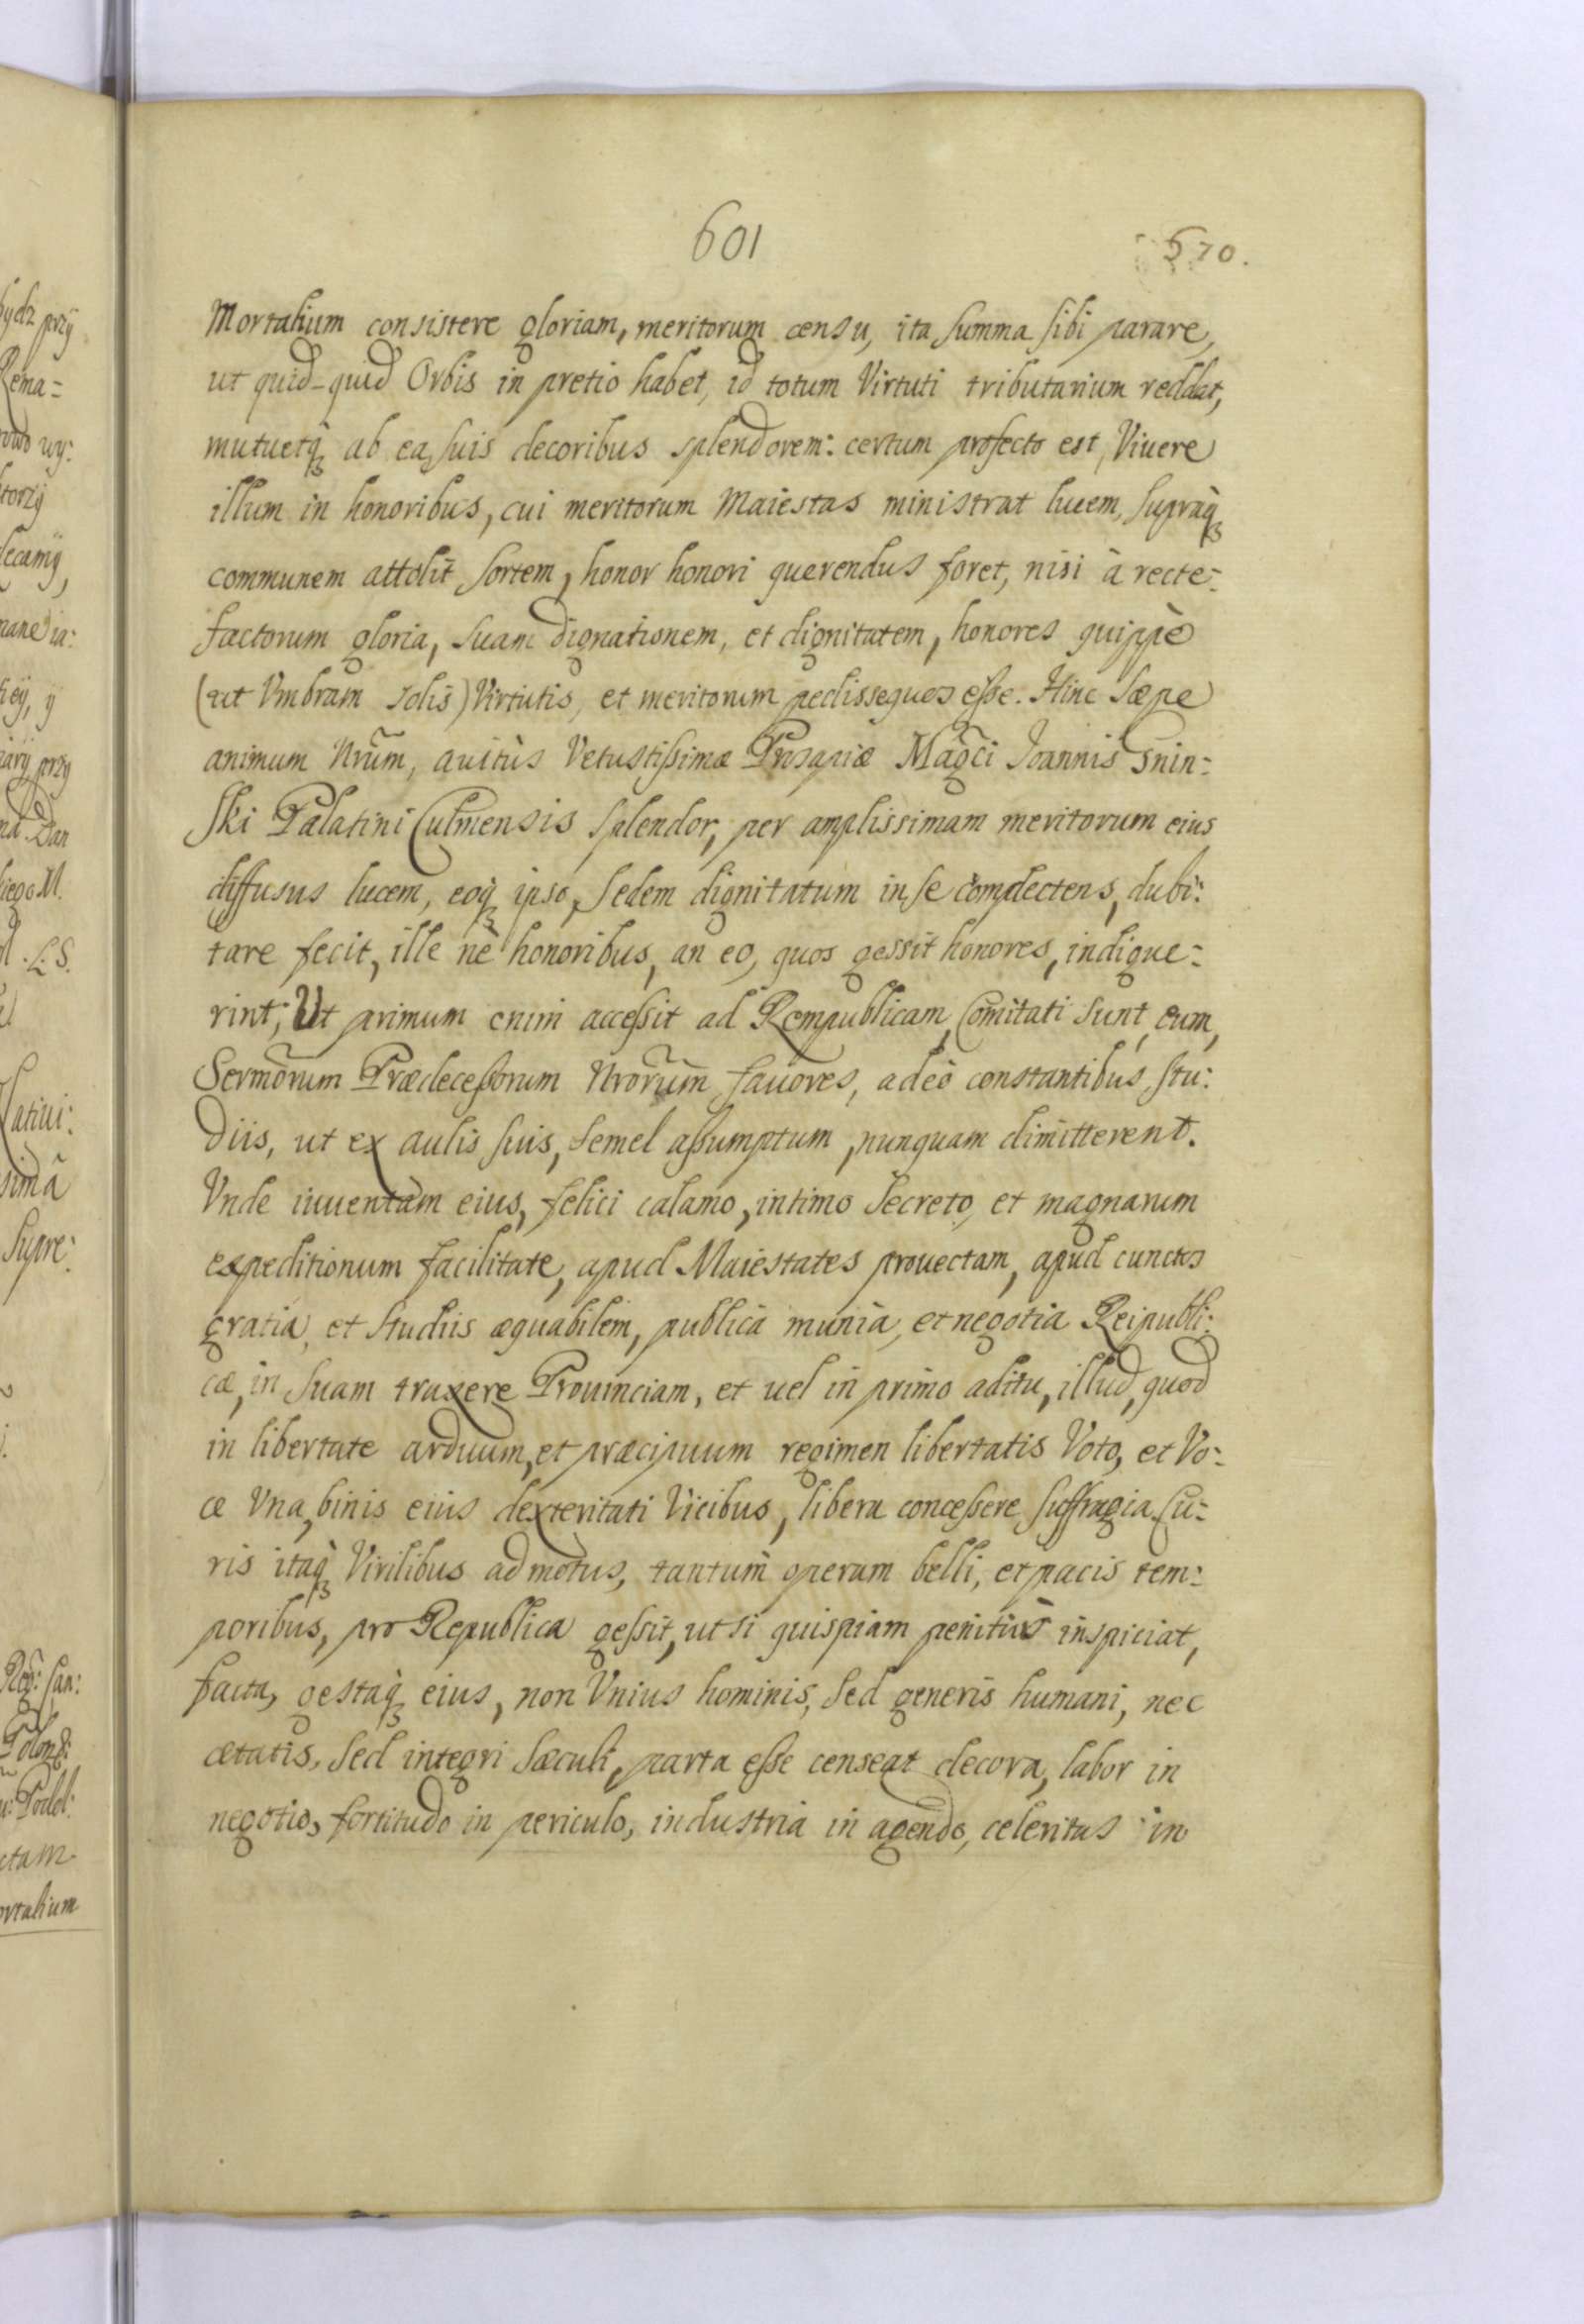 601
570.
Mortalium consistere gloriam, meritorum censu, ita summa sibi parare,
ut quid-quid Orbis in pretio habet, id totum Virtuti tributarium reddat,
mutuetq; ab ea, suis decoribus splendorem: certum profecto est, Viuere
illum in honoribus, cui meritorum Maiestas ministrat lucem, supràq;
communem attolit sortem, honor honori querendus foret, nisi à recte-
factorum gloria, suam dignationem, et dignitatem, honores quippè
(ut Vmbram solis) Virtutis, et meritorum pedissequos esse. Hinc sæpe
animum Nrũm, auitùs Vetustissimæ Prosapiæ Mag̃ci Joannis Gnin-
ski Palatini Culmensis splendor, per amplissimam meritorum eius
diffusus lucem, eoq; ipso, sedem dignitatum in se complectens, dubi:
tare fecit, ille nè honoribus, an eo, quos gessit honores, indigue-
rint; Ut primum enim accessit ad Rempublicam, Comitati sunt, eum,
Sermõrum Prædecessorum Nrõrum fauores, adeò constantibus, stu:
diis, ut ex aulis suis, semel assumptum, nunquam dimitterent.
Vnde iuuentam eius, felici calamo, intimo secreto, et magnarum
expeditionum facilitate, apud Maiestates prouectam, apud cunctos
gratia, et studiis æquabilem, publica munia, et negotia Reipubli:
cæ, in suam traxere Prouinciam, et uel in primo aditu, illud, quod
in libertate arduum, et præcipuum regimen libertatis Voto, et Vo-
ce Vna, binis eius dexteritati Vicibus, libera concessere suffragia. Cu-
ris itaq; Virilibus admotus, tantum operum belli, et pacis tem:
poribus, pro Republica gessit, ut si quispiam penitùs inspiciat,
facta, gestaq; eius, non Vnius hominis, sed generis humani, nec
ætatis, sed integri sæculi, parta esse censeat decora, labor in
negotio, fortitudo in periculo, industria in agendo, celeritas in